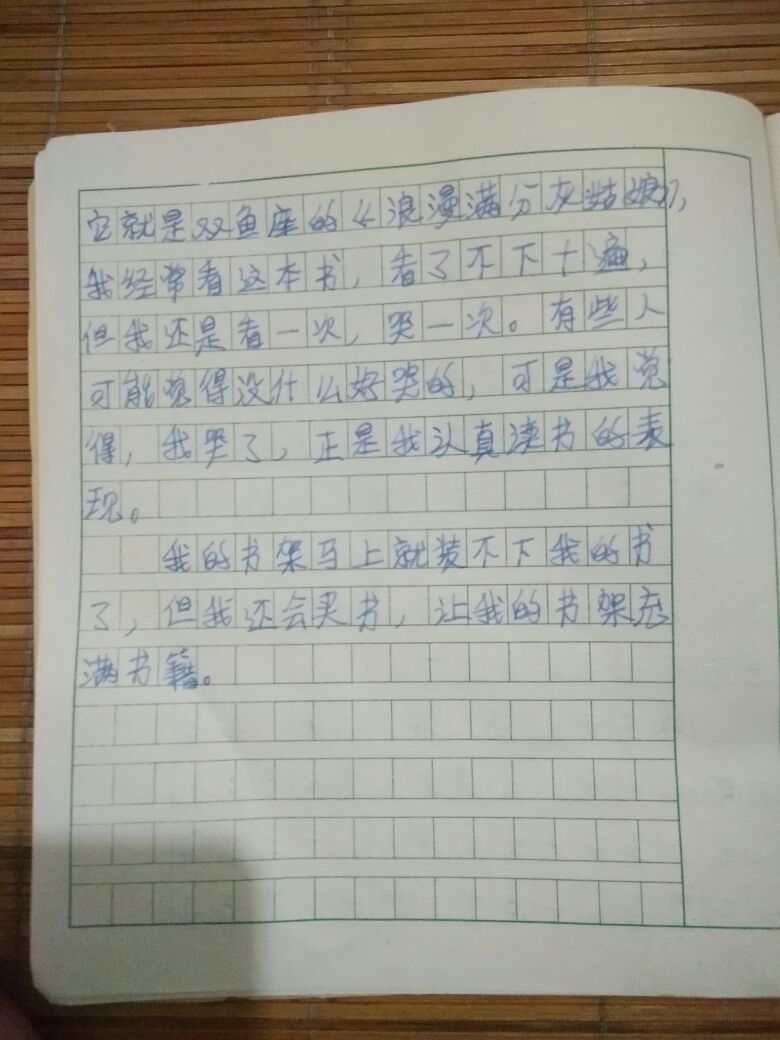 它就是双鱼座的《浪漫满分灰姑娘》,
我经常看这本书,看了不下十遍,
但我还是看一次,哭一次。有些人
可能觉得没什么好哭的,可是我觉
得,我哭了,正是我认真读书的表
现。
我的书架马上就装不下我的书
了,但我还会买书,让我的书架充
满书籍。